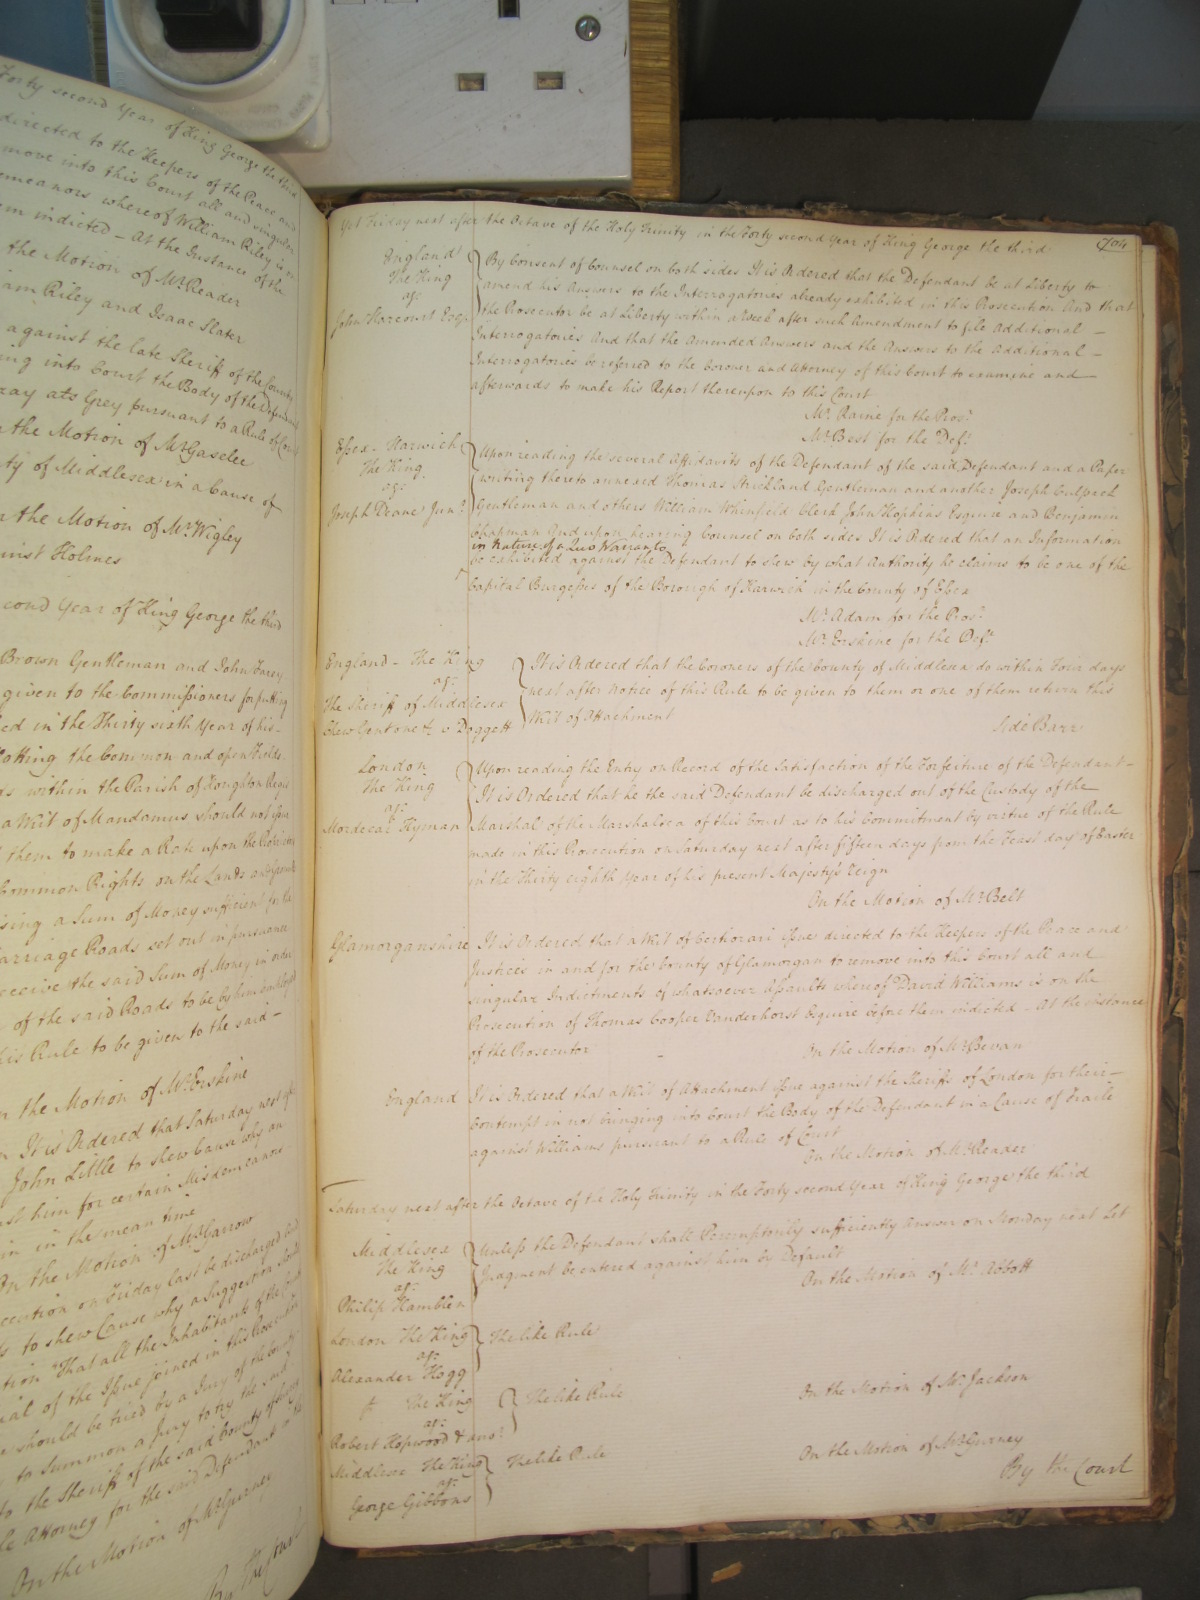 Forty second Year of King George the third
directed to the Keepers of the Peace and
move into this Court all and singular
emeanors whereof William Riley is or
em indicted – At the Instance of the
the Motion of Mr Reader
iam Riley and Isaac Slater
against the late Sheriff of the County
ing into Court the Body of the Defendant
ray ats Grey pursuant to a Rule of Court
n the Motion of Mr Gaselee
ty of Middlesex in a Cause of
n the Motion of Mr Wigley
ainst Holmes
cond Year of King George the third
Brown Gentleman and John
given to the Commissioners for putting
ed in the Thirty sixth Year of his –
lotting the Common and open Fields
rs within the Parish of Houghton Regis
a Writ of Mandamus should not issue
them to make a Rate upon the
Common Rights on the Lands and
ising a Sum of Money sufficient for the
arriage Roads set out in pursuance
eceive the said Sum of Money in order
of the said Roads to be by him employed
his Rule to be given to the said –
n the Motion of Mr Erskine
n It is Ordered that Saturday next
John Little to shew Cause why an
nst him for certain Misdemeanors
in in the mean time
On the Motion of Mr Garrow
ecution on Friday last be discharged
s to shew Cause why a Suggestion should
tion "That all the Inhabitants of the
ial of the Issue joined in this Prosecution
e should be tried by a Jury of the County
to Summon a Jury to try the said
to the Sheriff of the said County of
le Attorney for the said Defendant
On the Motion of Mr Gurney
By the Court
Yet Friday next after the Octave of the Holy Trinity in the Forty second Year of King George the third
704
England
The King
agt
John Harcourt Esqr
By Consent of Counsel on both sides It is Ordered that the Defendant be at Liberty to
amend his Answers to the Interrogatories already exhibited in this Prosecution And that
the Prosecutor be at Liberty within a Week after such Amendment to file Additional –
Interrogatories And that the Amended Answers and the Answers to the Additional –
Interrogatories be referred to the Coroner and Attorney of this Court to examine and –
afterwards to make his Report thereupon to this Court
Mr Raine for the Prosr
Mr Best for the Deft
Essex – Harwich
The King
agt
Joseph Deane Junr
Upon reading the several Affidavits of the Defendant of the said Defendant and a Paper
writing thereto annexed Thomas Strickland Gentleman and another Joseph Culpeck
Gentleman and others William Whinfield Clerk John Hopkins Esquire and Benjamin
Chapman And upon hearing Counsel on both sides It is Ordered that an Information
in Nature of a Quo Warranto
be exhibited against the Defendant to shew by what Authority he claims to be one of the
Capital Burgesses of the Borough of Harwich in the County of Essex
Mr Adam for the Prosr
Mr Erskine for the Deft
England – The King
agt
The Sheriff of Middlesex
Shew Gent one &c v Doggett
It is Ordered that the Coroners of the County of Middlesex do within Four days
next after notice of this Rule to be given to them or one of them return this
Writ of Attachment
Side Barr
London
The King
agt
Mordecai Hyman
Upon reading the Entry on Record of the Satisfaction of the Forfeiture of the Defendant –
It is Ordered that he the said Defendant be discharged out of the Custody of the
Marshal of the Marshalsea of this Court as to his Commitment by virtue of the Rule
made in this Prosecution on Saturday next after fifteen days from the Feast day of Easter
in the Thirty eighth Year of his present Majesty's Reign
On the Motion of Mr Belt
Glamorganshire
It is Ordered that a Writ of Certiorari issue directed to the Keepers of the Peace and
Justices in and for the County of Glamorgan to remove into this Court all and
singular Indictments of whatsoever Assaults whereof David Williams is on the
Prosecution of Thomas Cooper Vanderhorst Esquire before them indicted – At the Instance
of the Prosecutor
On the Motion of Mr Bevan
England
It is Ordered that a Writ of Attachment issue against the Sheriffs of London for their –
Contempt in not bringing into Court the Body of the Defendant in a Cause of Fraile
against Williams pursuant to a Rule of Court
On the Motion of Mr Reader
Saturday next after the Octave of the Holy Trinity in the Forty second Year of King George the third
Middlesex
The King
agt
Philip Hamblen
Unless the Defendant shall Peremptorily sufficiently Answer on Monday next Let
Judgment be entered against him by Default
On the Motion of Mr Abbott
London The King
agt
Alexander Hogg
The like Rule
The King
agt
Robert Hopwood & anor
The like Rule
On the Motion of Mr Jackson
Middlesex The King
agt
George Gibbons
The like Rule
On the Motion of Mr Gurney
By the Court